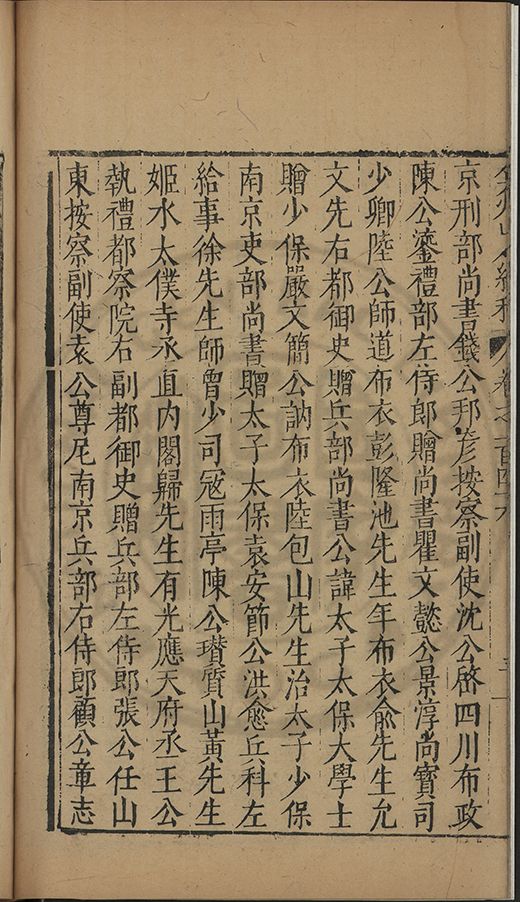 弇州山人續稿 卷之一百四十六
京刑部尚書錢公邦彦按察副使沈公啓四川布政
陳公鎏禮部左侍郎贈尚書瞿文懿公景淳尚寶司
少卿陸公師道布衣彭隆池先生年布衣俞先生允
文先右都御史贈兵部尚書公諱太子太保大學士
贈少保嚴文簡公訥布衣陸包山先生治太子少保
南京吏部尚書贈太子太保袁安節公洪愈兵科左
給事徐先生師曾少司寇雨亭陳公瓚質山黃先生
姬水太僕寺丞直内閣歸先生有光應天府丞王公
執禮都察院右副都御史贈兵部左侍郎張公任山
東按察副使袁公尊尼南京兵部右侍郎顧公章志